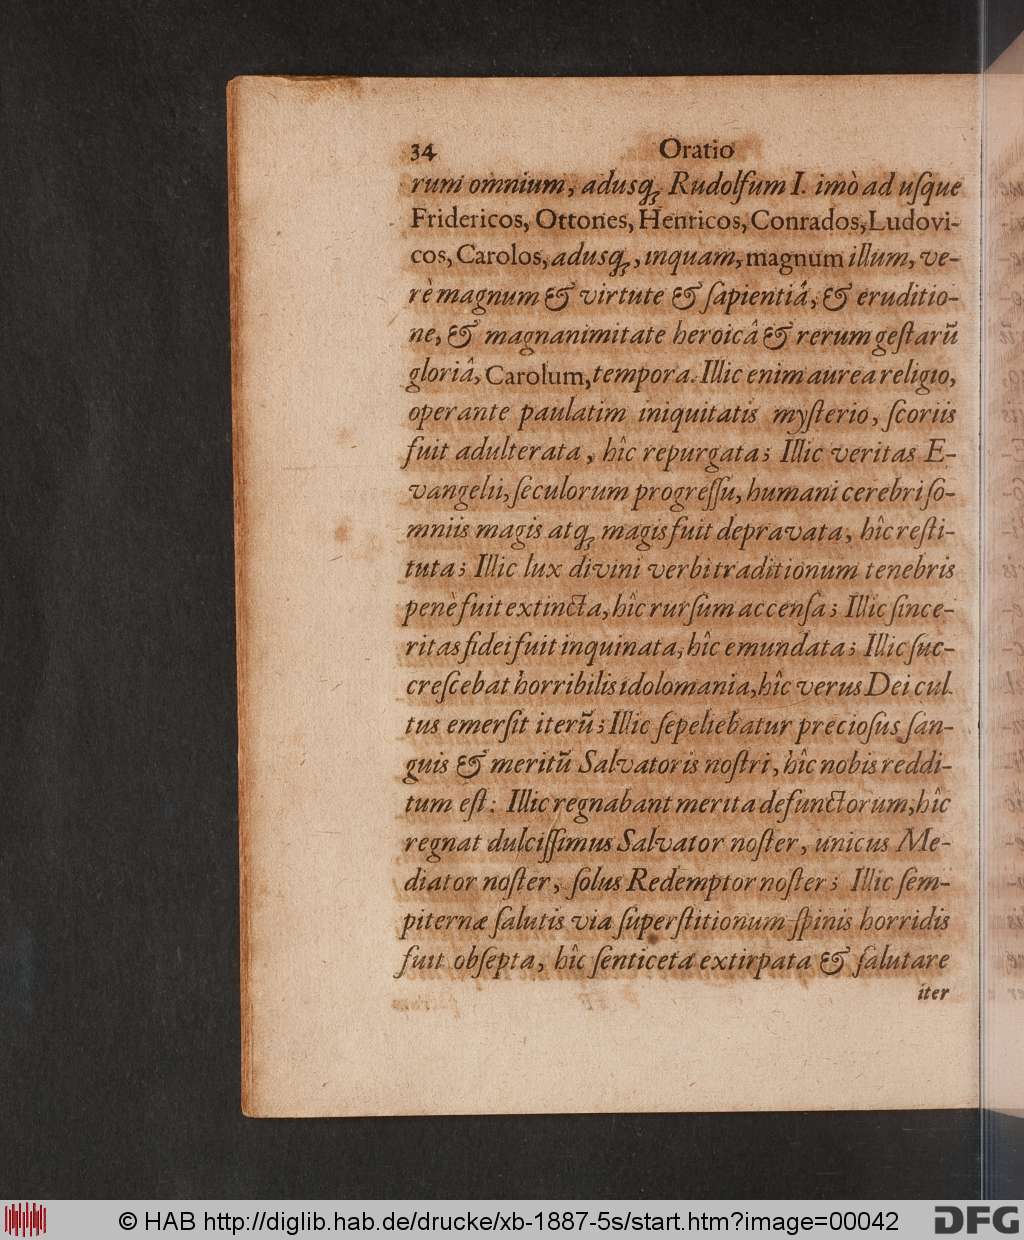 34 Oratio
rum omnium, adusq́ꝫ Rudolfum I. imò ad uſque
Fridericos, Ottones, Henricos, Conrados, Ludovi-
cos, Carolos, adusq́ꝫ, inquam, magnum illum, ve-
rè magnum & virtute & ſapientiâ, & eruditio-
ne, & magnanimitate heroicâ & rerum geſtarũ
gloriâ, Carolum, tempora. Illic enim aurea religio,
operante paulatim iniquitatis myſterio, ſcoriis
fuit adulterata, hîc repurgata; Illic veritas E-
vangelii, ſeculorum progreſſu, humani cerebri ſo-
mniis magis atq́ꝫ magis fuit depravata, hîc reſti-
tuta; Illic lux divini verbi traditionum tenebris
penè fuit extincta, hîc rurſum accenſa; Illic ſince-
ritas fidei fuit inquinata, hîc emundata; Illic ſuc-
creſcebat horribilis idolomania, hîc verus Dei cul-
tus emerſit iterũ; Illic ſepeliebatur precioſus ſan-
guis & meritũ Salvatoris noſtri, hîc nobis reddi-
tum eſt: Illic regnabant merita defunctorum, hîc
regnat dulciſſimus Salvator noſter, unicus Me-
diator noſter, ſolus Redemptor noſter; Illic ſem-
piternæ ſalutis via ſuperſtitionum ſpinis horridis
fuit obſepta, hîc ſenticeta extirpata & ſalutare
iter
© HAB http://diglib.hab.de/drucke/xb-1887-5s/start.htm?image=00042 DFG